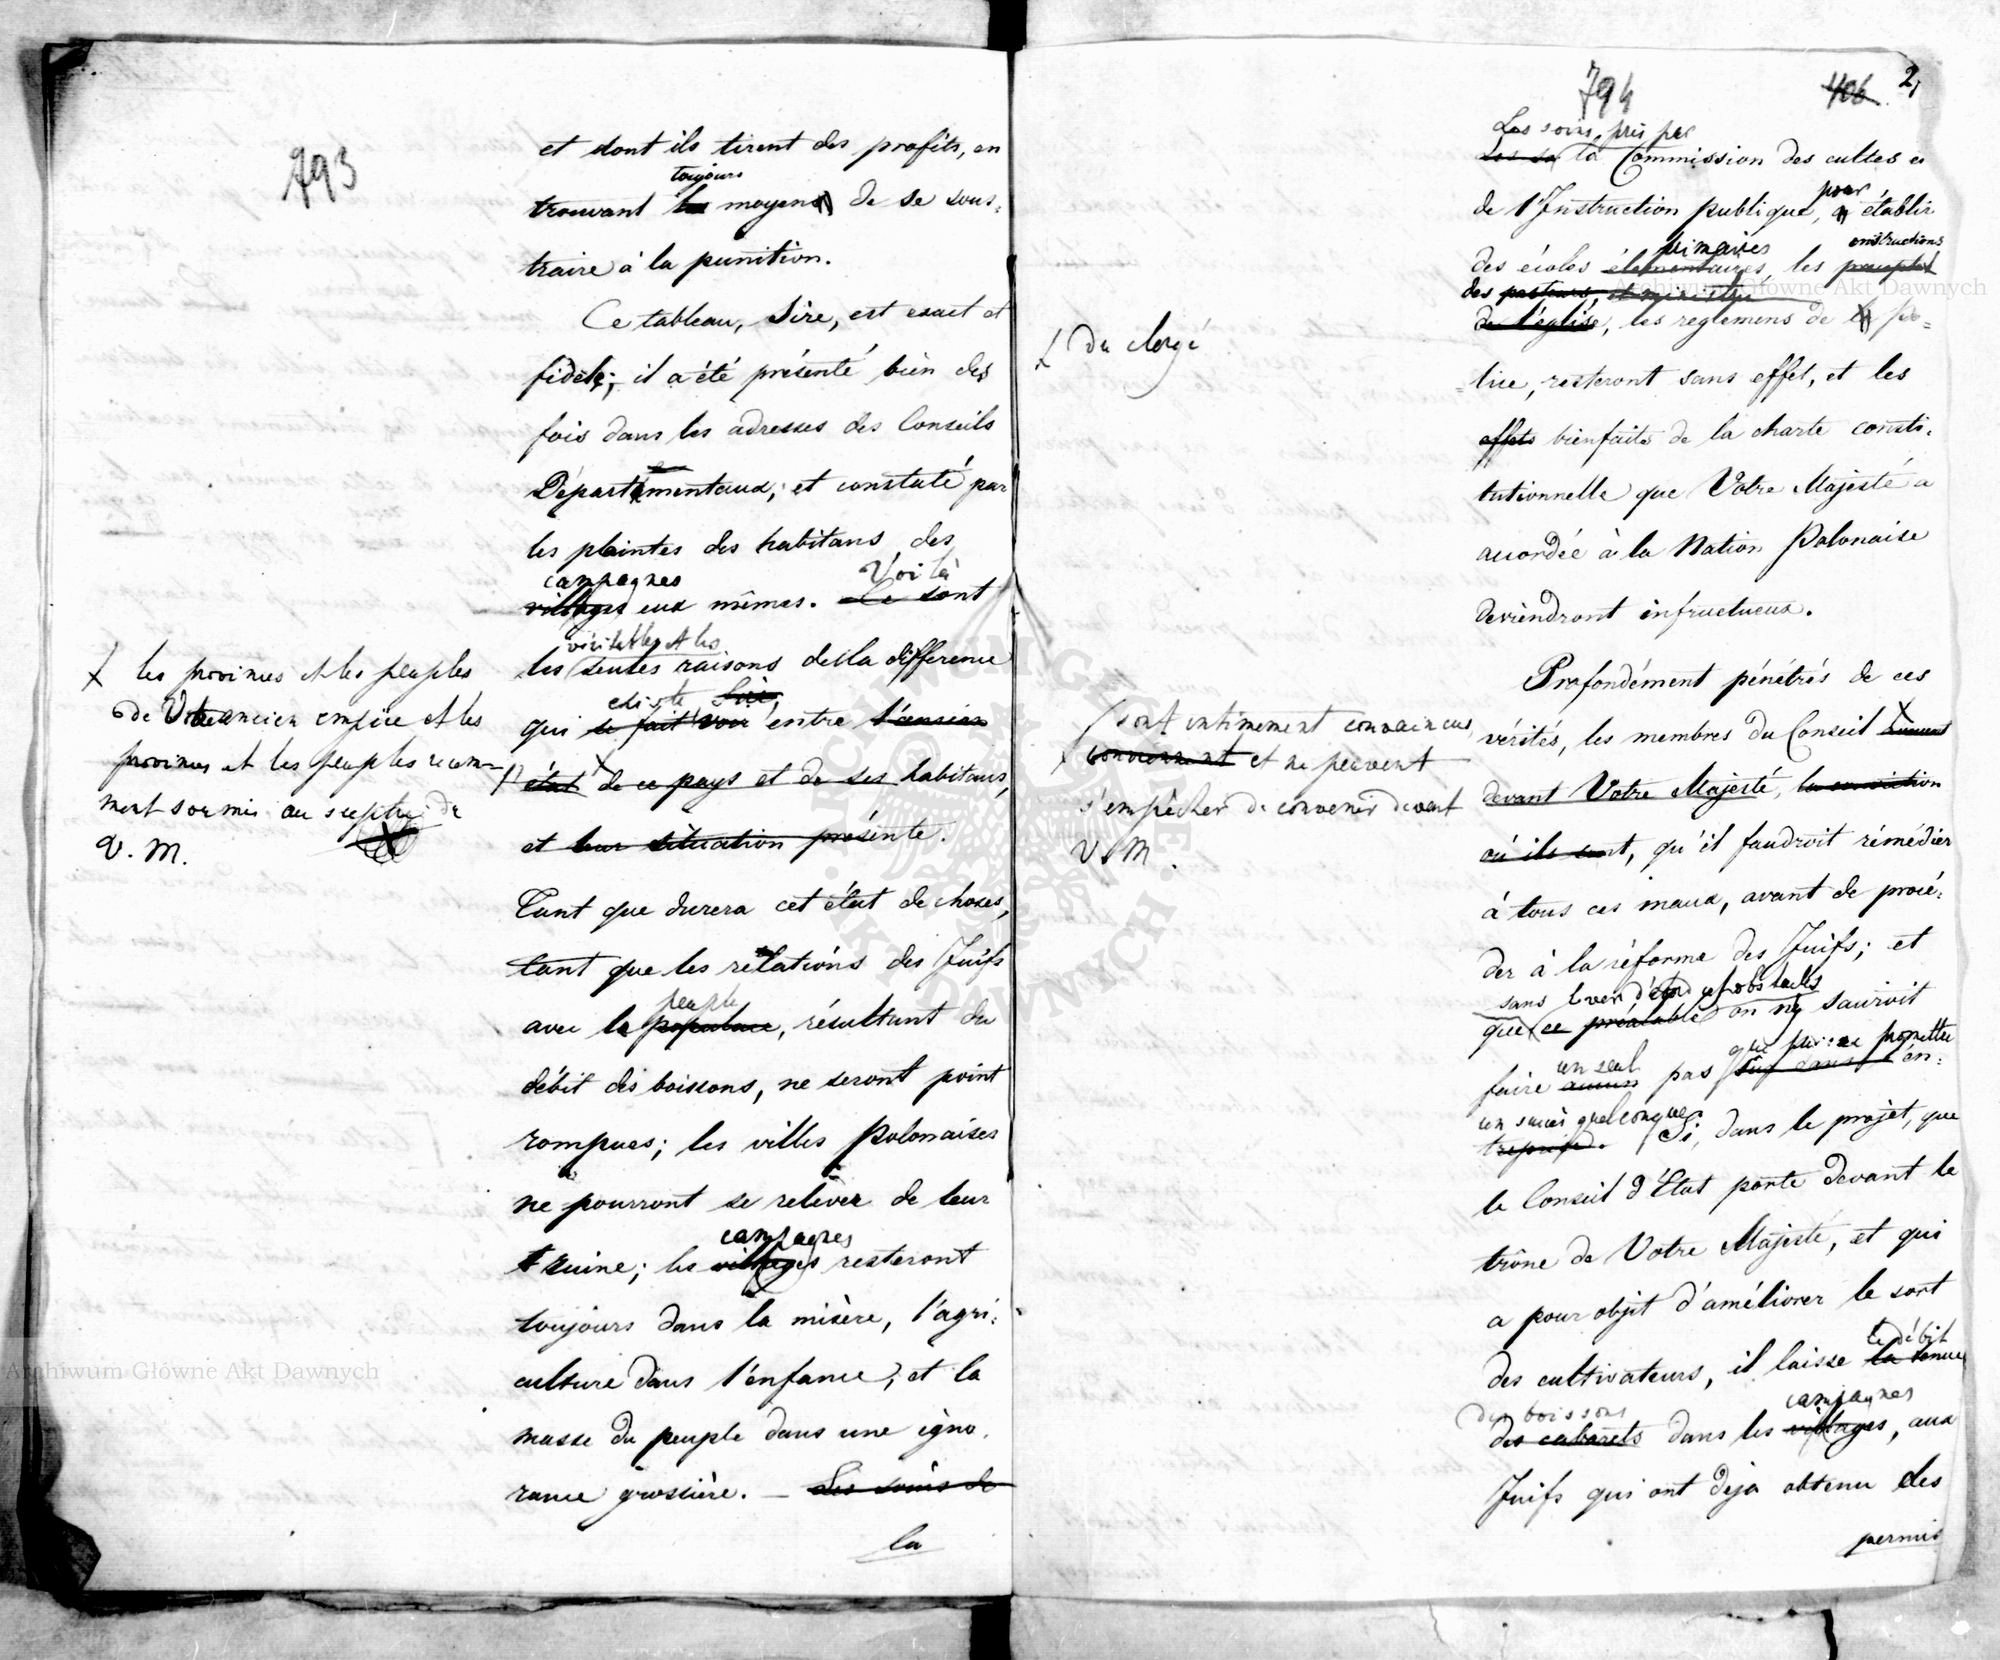 793
et dont ils tirent des profits, en
toujours
trouvant les moyens de se sous=
traire à la punition.
Ce tableau, Sire, est exact et
fidèle; il a été présenté bien des
fois dans les adresses des Conseils
Départementaux, et constaté par
les plaintes des habitans des
campagnes Voilà
villages eux mêmes. Ce sont
véritables et les
les seules raisons de la différence
existe Sire,
qui se fait voir entre l'ancien
état de ce pays et de ses habitans,
et leur situation présente.
Tant que durera cet état de choses,
tant que les rélations des Juifs
peuple
avec la populace, résultant du
débit des boissons, ne seront point
rompues; les villes Polonaises
ne pourront se reléver de leur
campagnes
ruine; les villages resteront
toujours dans la misère, l'agri=
culture dans l'enfance, et la
masse du peuple dans une igno=
rance grossière. — Les soins de
la
les provinces et les peuples
de Votre ancien empire et les
provinces et les peuples recem-
ment soumis au sceptre de
V. M.
794 406 2,
Les soins pris par
Les so la Commission des cultes et
pour
de l'Instruction publique, à établir
primaires instructions
des écoles élémentaires, les
des pasteurs, et ministres
de l'église, les reglemens de la po=
=lice, resteront sans effet, et les
effets bienfaits de la charte consti=
tutionnelle que Votre Majesté a
accordée à la Nation Polonaise
deviendront infructueux.
Profondément pénétrés de ces
vérités, les membres du Conseil
devant Votre Majesté, la conviction
où ils sont, qu'il faudroit rémédier
à tous ces maux, avant de procé=
der à la réforme des Juifs; et
sans lever d'abord ces obstacles
que ce préalable on ne sauroit
un seul qui puisse promettre
faire aucun pas sur dans l'en=
un succès quelconque.
treprise. Si, dans le projet, que
le Conseil d'Etat porte devant le
trône de Votre Majesté, et qui
a pour objet d'améliorer le sort
le débit
des cultivateurs, il laisse la tenue
des boissons campagnes
des cabarets dans les villages, aux
Juifs qui ont déja obtenu des
permis
du clergé
sont intimement convaincus
conviennent et ne peuvent
s'empêcher de convenir devant
V. M.
Archiwum Główne Akt Dawnych
Archiwum Główne Akt Dawnych
ARCHIWUM GŁÓWNE AKT DAWNYCH